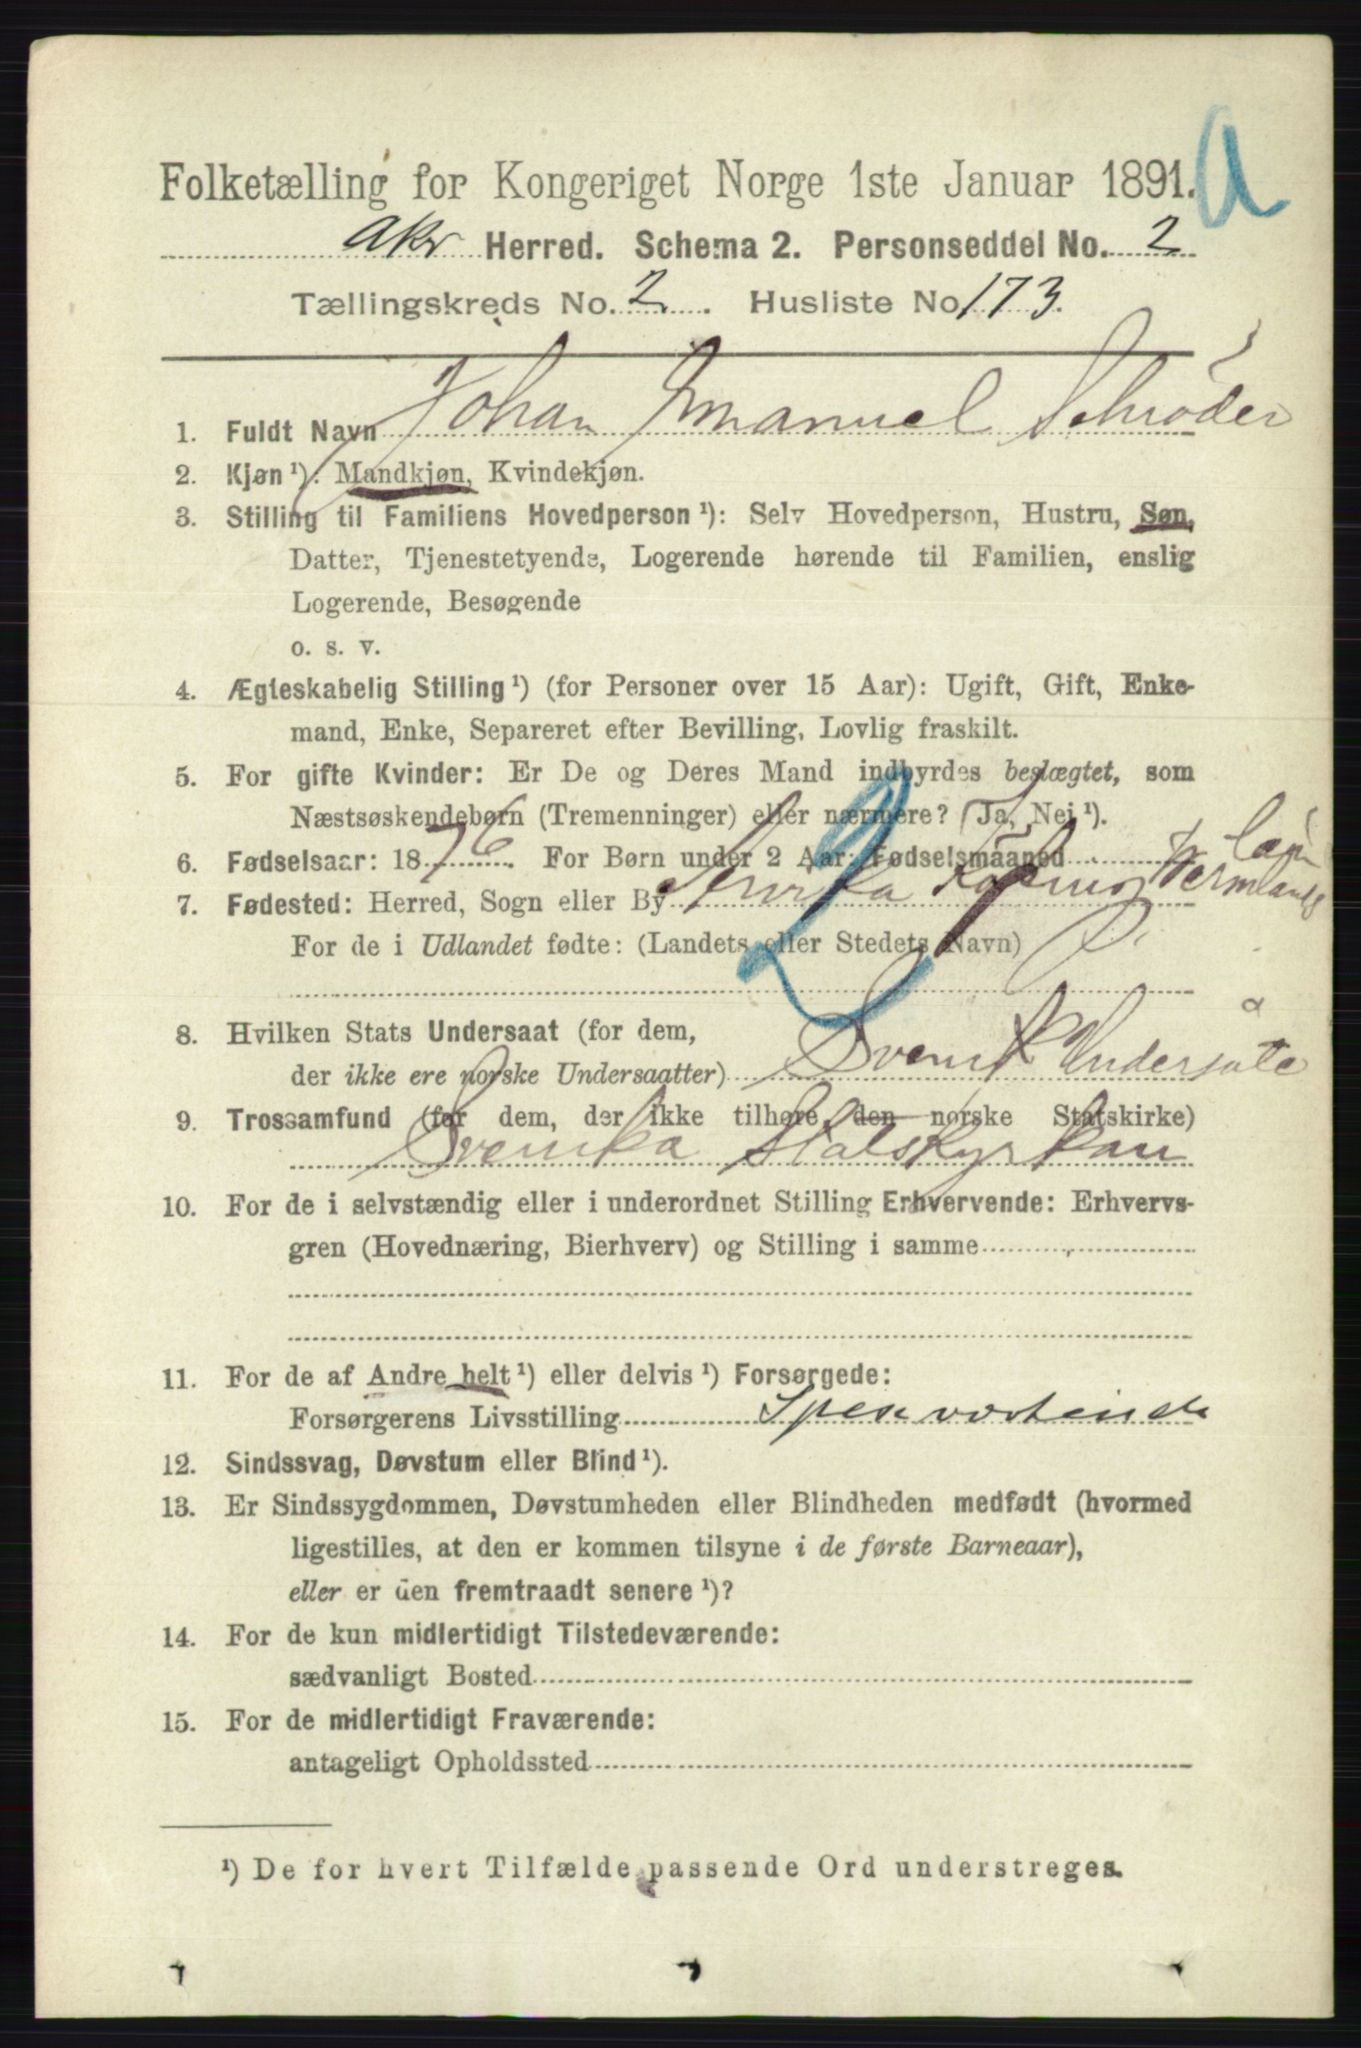 a
Folketælling for Kongeriget Norge 1ste Januar 1891.
Akr Herred. Schema 2. Personseddel No. 2
Tællingskreds No. 2. Husliste No 173.
1. Fuldt Navn Johan Emanuel Schröder
2. Kjøn ¹). Mandkjøn, Kvindekjøn.
3. Stilling til Familiens Hovedperson ¹): Selv Hovedperson, Hustru, Søn,
Datter, Tjenestetyende, Logerende hørende til Familien, enslig
Logerende, Besøgende
o. s. v.
4. Ægteskabelig Stilling ¹) (for Personer over 15 Aar): Ugift, Gift, Enke-
mand, Enke, Separeret efter Bevilling, Lovlig fraskilt.
5. For gifte Kvinder: Er De og Deres Mand indbyrdes beslægtet, som
Næstsøskendebørn (Tremenninger) eller nærmere? (Ja, Nei ¹).
6. Fødselsaar: 1876. For Børn under 2 Aar: Fødselsmaaned
7. Fødested: Herred, Sogn eller By Arvika Köping Wermlands
For de i Udlandet fødte: (Landets eller Stedets Navn)
2
8. Hvilken Stats Undersaat (for dem,
der ikke ere norske Undersaatter) Svensk Undersåte
9. Trossamfund (for dem, der ikke tilhøre den norske Statskirke)
Svenska Statskyrkan
10. For de i selvstændig eller i underordnet Stilling Erhvervende: Erhvervs-
gren (Hovednæring, Bierhverv) og Stilling i samme
11. For de af Andre helt ¹) eller delvis ¹) Forsørgede:
Forsørgerens Livsstilling
12. Sindssvag, Døvstum eller Blind ¹).
13. Er Sindssygdommen, Døvstumheden eller Blindheden medfødt (hvormed
ligestilles, at den er kommen tilsyne i de første Barneaar),
eller er den fremtraadt senere ¹)?
14. For de kun midlertidigt Tilstedeværende:
sædvanligt Bosted
15. For de midlertidigt Fraværende:
antageligt Opholdssted
¹) De for hvert Tilfælde passende Ord understreges.